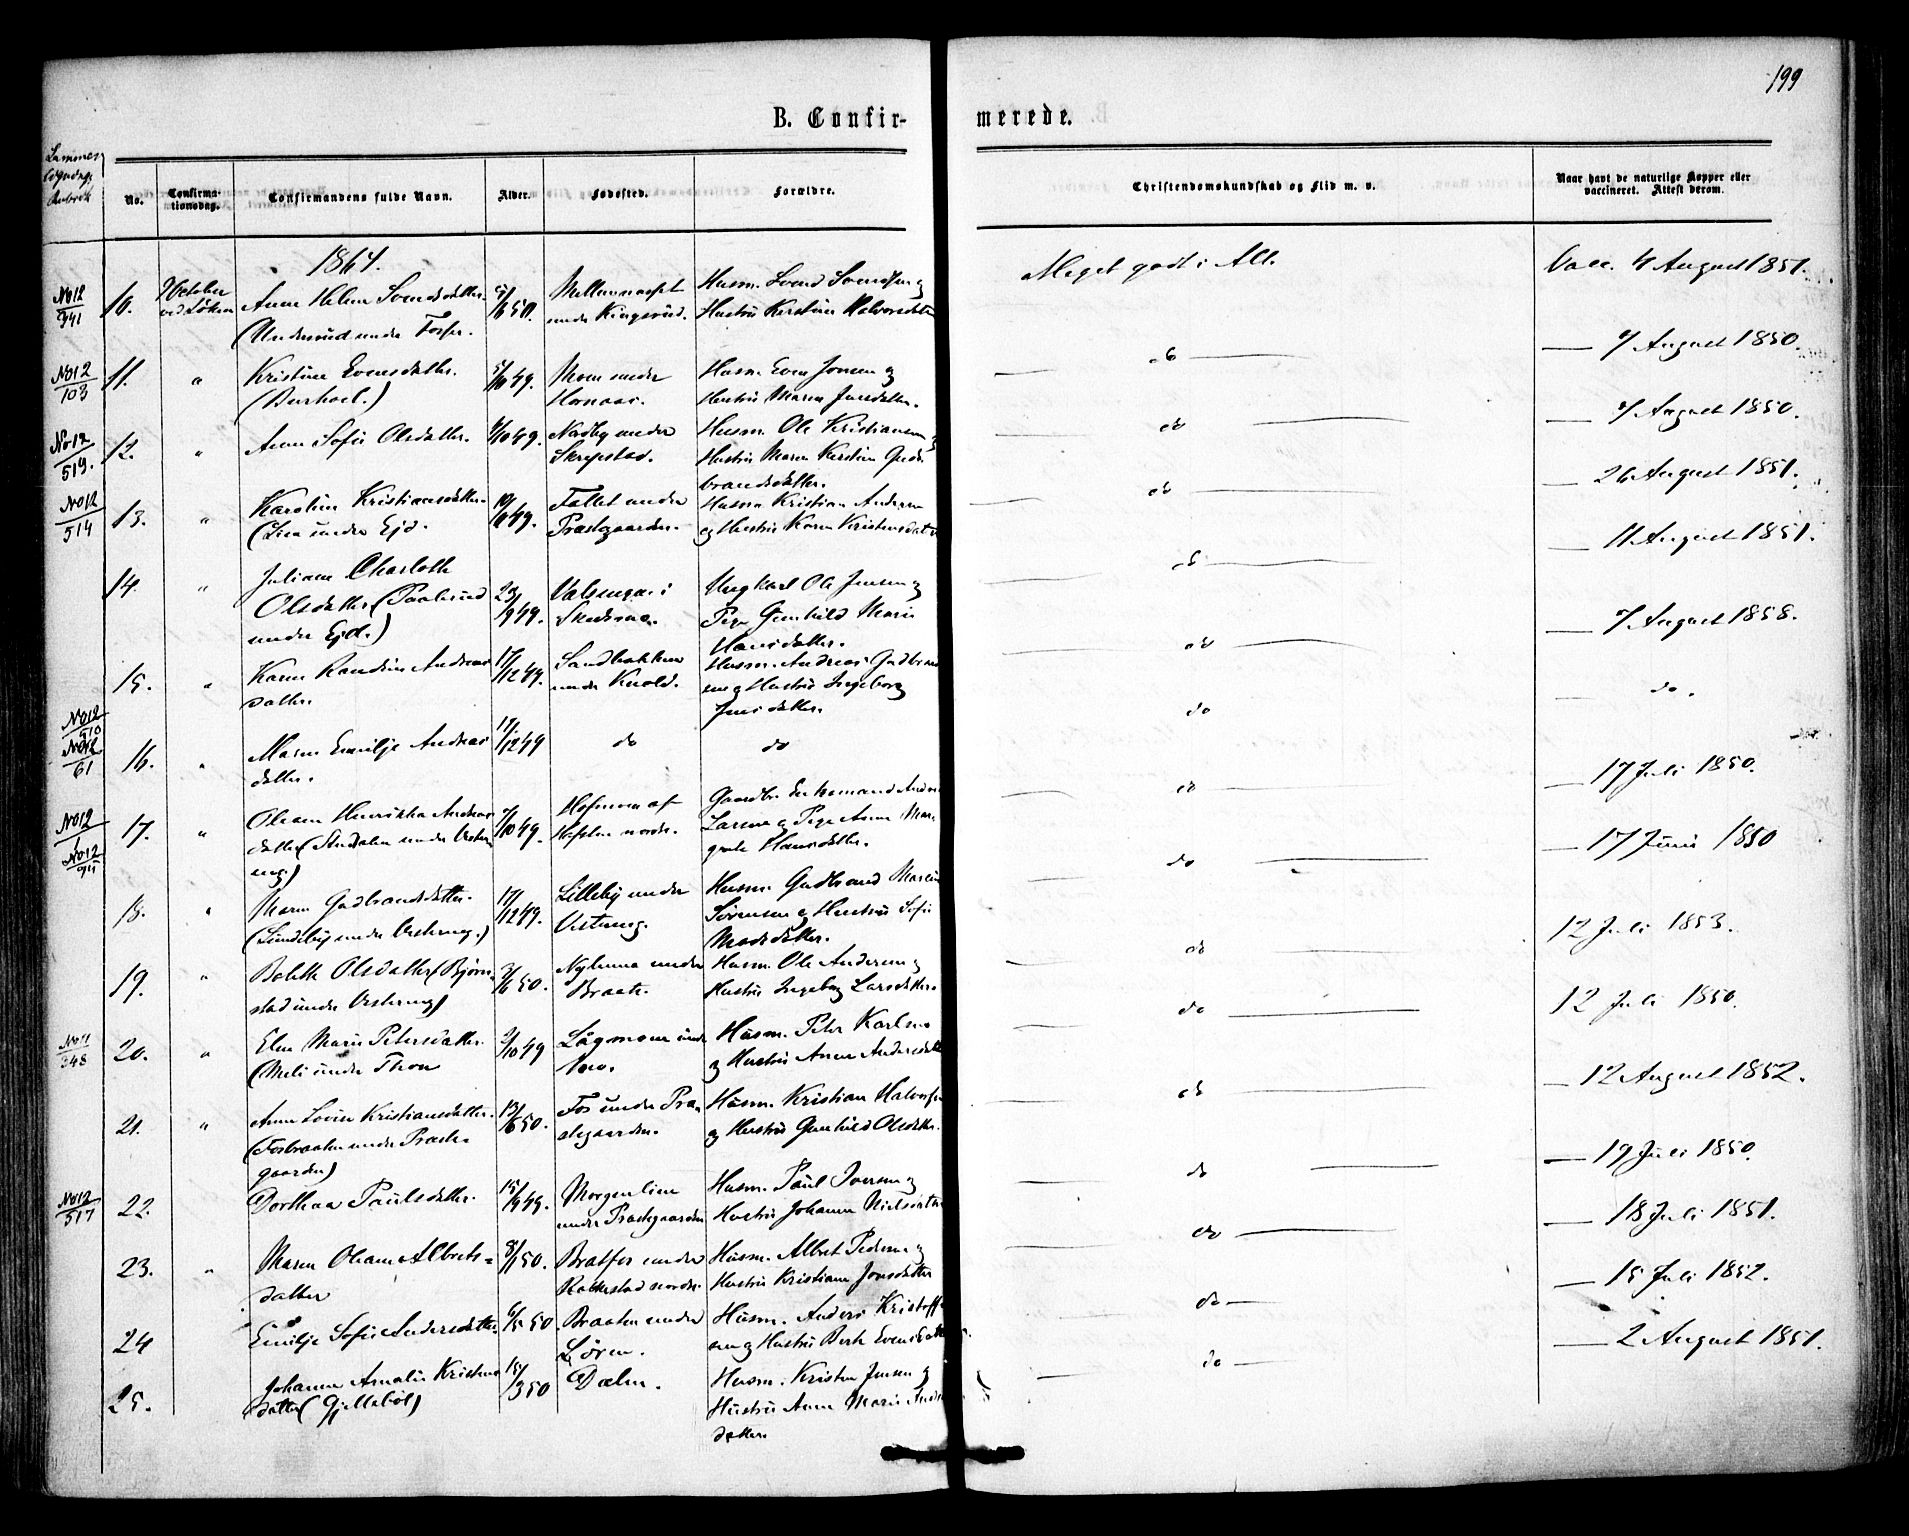 199
B. Confir-
merede.
No.
Confirma-
tionsdag.
Confirmandens fulde Navn.
Alder.
Fødested.
Forældre.
Christendomskundskab og Flid m. v.
Naar havt de naturlige Kopper eller
vaccineret. Attest derom.
1864.
No 12
341
10.
2 October
ved Løken
Anne Helene Svendsdatter
(Undersrud under Fosser.
5/6 50.
under Kingsrud.
Husm. Svend Svendsen og
Hustru Kerstine Halvorsdatter
Meget godt i Alt.
Vacc. 4 August 1851.
No 12
103
11.
"
Kristine Evensdatter.
(Burhoel.)
5/10 49.
Moen under
Hornaas.
Husm. Even Jonsen og
Hustru Maren Jensdatter.
do
— 7 August 1850.
No 12
519.
12.
"
Anne Sofie Olsdatter.
4/10 49.
Nordby under
Skrepstad.
Husm. Ole Kristiansen og
Hustru Maren Kerstine Gud-
brandsdatter.
do
— 7 August 1850.
No 12
514
13.
"
Karoline Kristiansdatter
(Lien under Ejd.
19/10 49.
Fallet under
Præstgaarden.
Husm Kristian Andersen
og Hustru Karen Kristensdatter
do
— 26 August 1851.
14.
"
Juliane Charloth
Olsdatter (Paalsrud
under Ejd.)
23/9 49.
Valengen i
Skedsmo.
Ungkarl Ole Jensen og
Pige Gunhild Marie
Hansdatter.
do
— 11 August 1851.
15.
"
Karen Randine Andreas
datter.
17/12 49.
Sandbakken
under Knold.
Husm. Andreas Gudbrand
sen og Hustru Ingeborg
Jensdatter.
do
— 7 August 1858.
No 12
510
No 12
61
16.
"
Maren Emilje Andreas
datter.
17/12 49
do
do
do
— do.
No 12
1
No 12
94
17.
"
Oleane Henrikka Andreas
datter (Asdalen under Vester
eng.)
7/10 49.
Hofmoen af
Hofslan nordre.
Gaardbr. Enkemand Anders
Larsen og Pige Anne Mar-
grete Hansdatter.
do
— 17 Juli 1850.
18.
"
Maren Gudbrandsdatter.
(Lundeby under Vestereng.)
17/12 49.
Lilleby under
Vestereng.
Husm. Gudbrand Marius
Sørensen og Hustru Sofie
Madsdatter.
do
— 17 Juni 1850
19.
"
Bolette Olsdatter (Bjørn-
stad under Vestereng)
3/6 50.
Nylenna under
Braate.
Husm. Ole Andersen og
Hustru Ingeborg Larsdatter.
do
12 Juli 1853.
No 11
348
20.
"
Elen Marie Petersdatter.
(Meli under Thon
2/10 49
Lågmoen under
Moe.
Husm. Peter Karlsen
og Hustru Anne Andersdatter
do
12 Juli 1850.
21.
"
Anne Lovise Kristiansdatter.
(Fosbraaten under Præste-
gaarden)
13/6 50.
Fos under Præ-
stegaarden.
Husm. Kristian Halvorsen
og Hustru Gunhild Olsdatter.
do
— 12 August 1852.
No 12
517
22.
Dorthea Paulsdatter.
15/9 49.
Morgenlien
under Præstegaarden
Husm. Paul Iversen og
Hustru Johanne Nielsdatter
do
— 19 Juli 1850.
23.
"
Maren Oleane Albrets-
datter
8/1 50.
Bratfos under
Rakkestad nordre
Husm. Albret Pedersen og
Hustru Kristiane Jonsdatter
do
— 18 Juli 1851.
24
Emilje Sofie Andersdatter
6/5 50
Braaten under
Lören.
Husm. Anders Kristoffer
sen og Hustru Berte Evensdatter
do
— 15 Juli 1852.
25.
Johanne Amalie Kristens
datter (Gjellebøl)
15/3 50
Dalen.
Husm. Kristen Jensen og
Hustru Anne Marie Anders
datter.
do
— 2 August 1851.